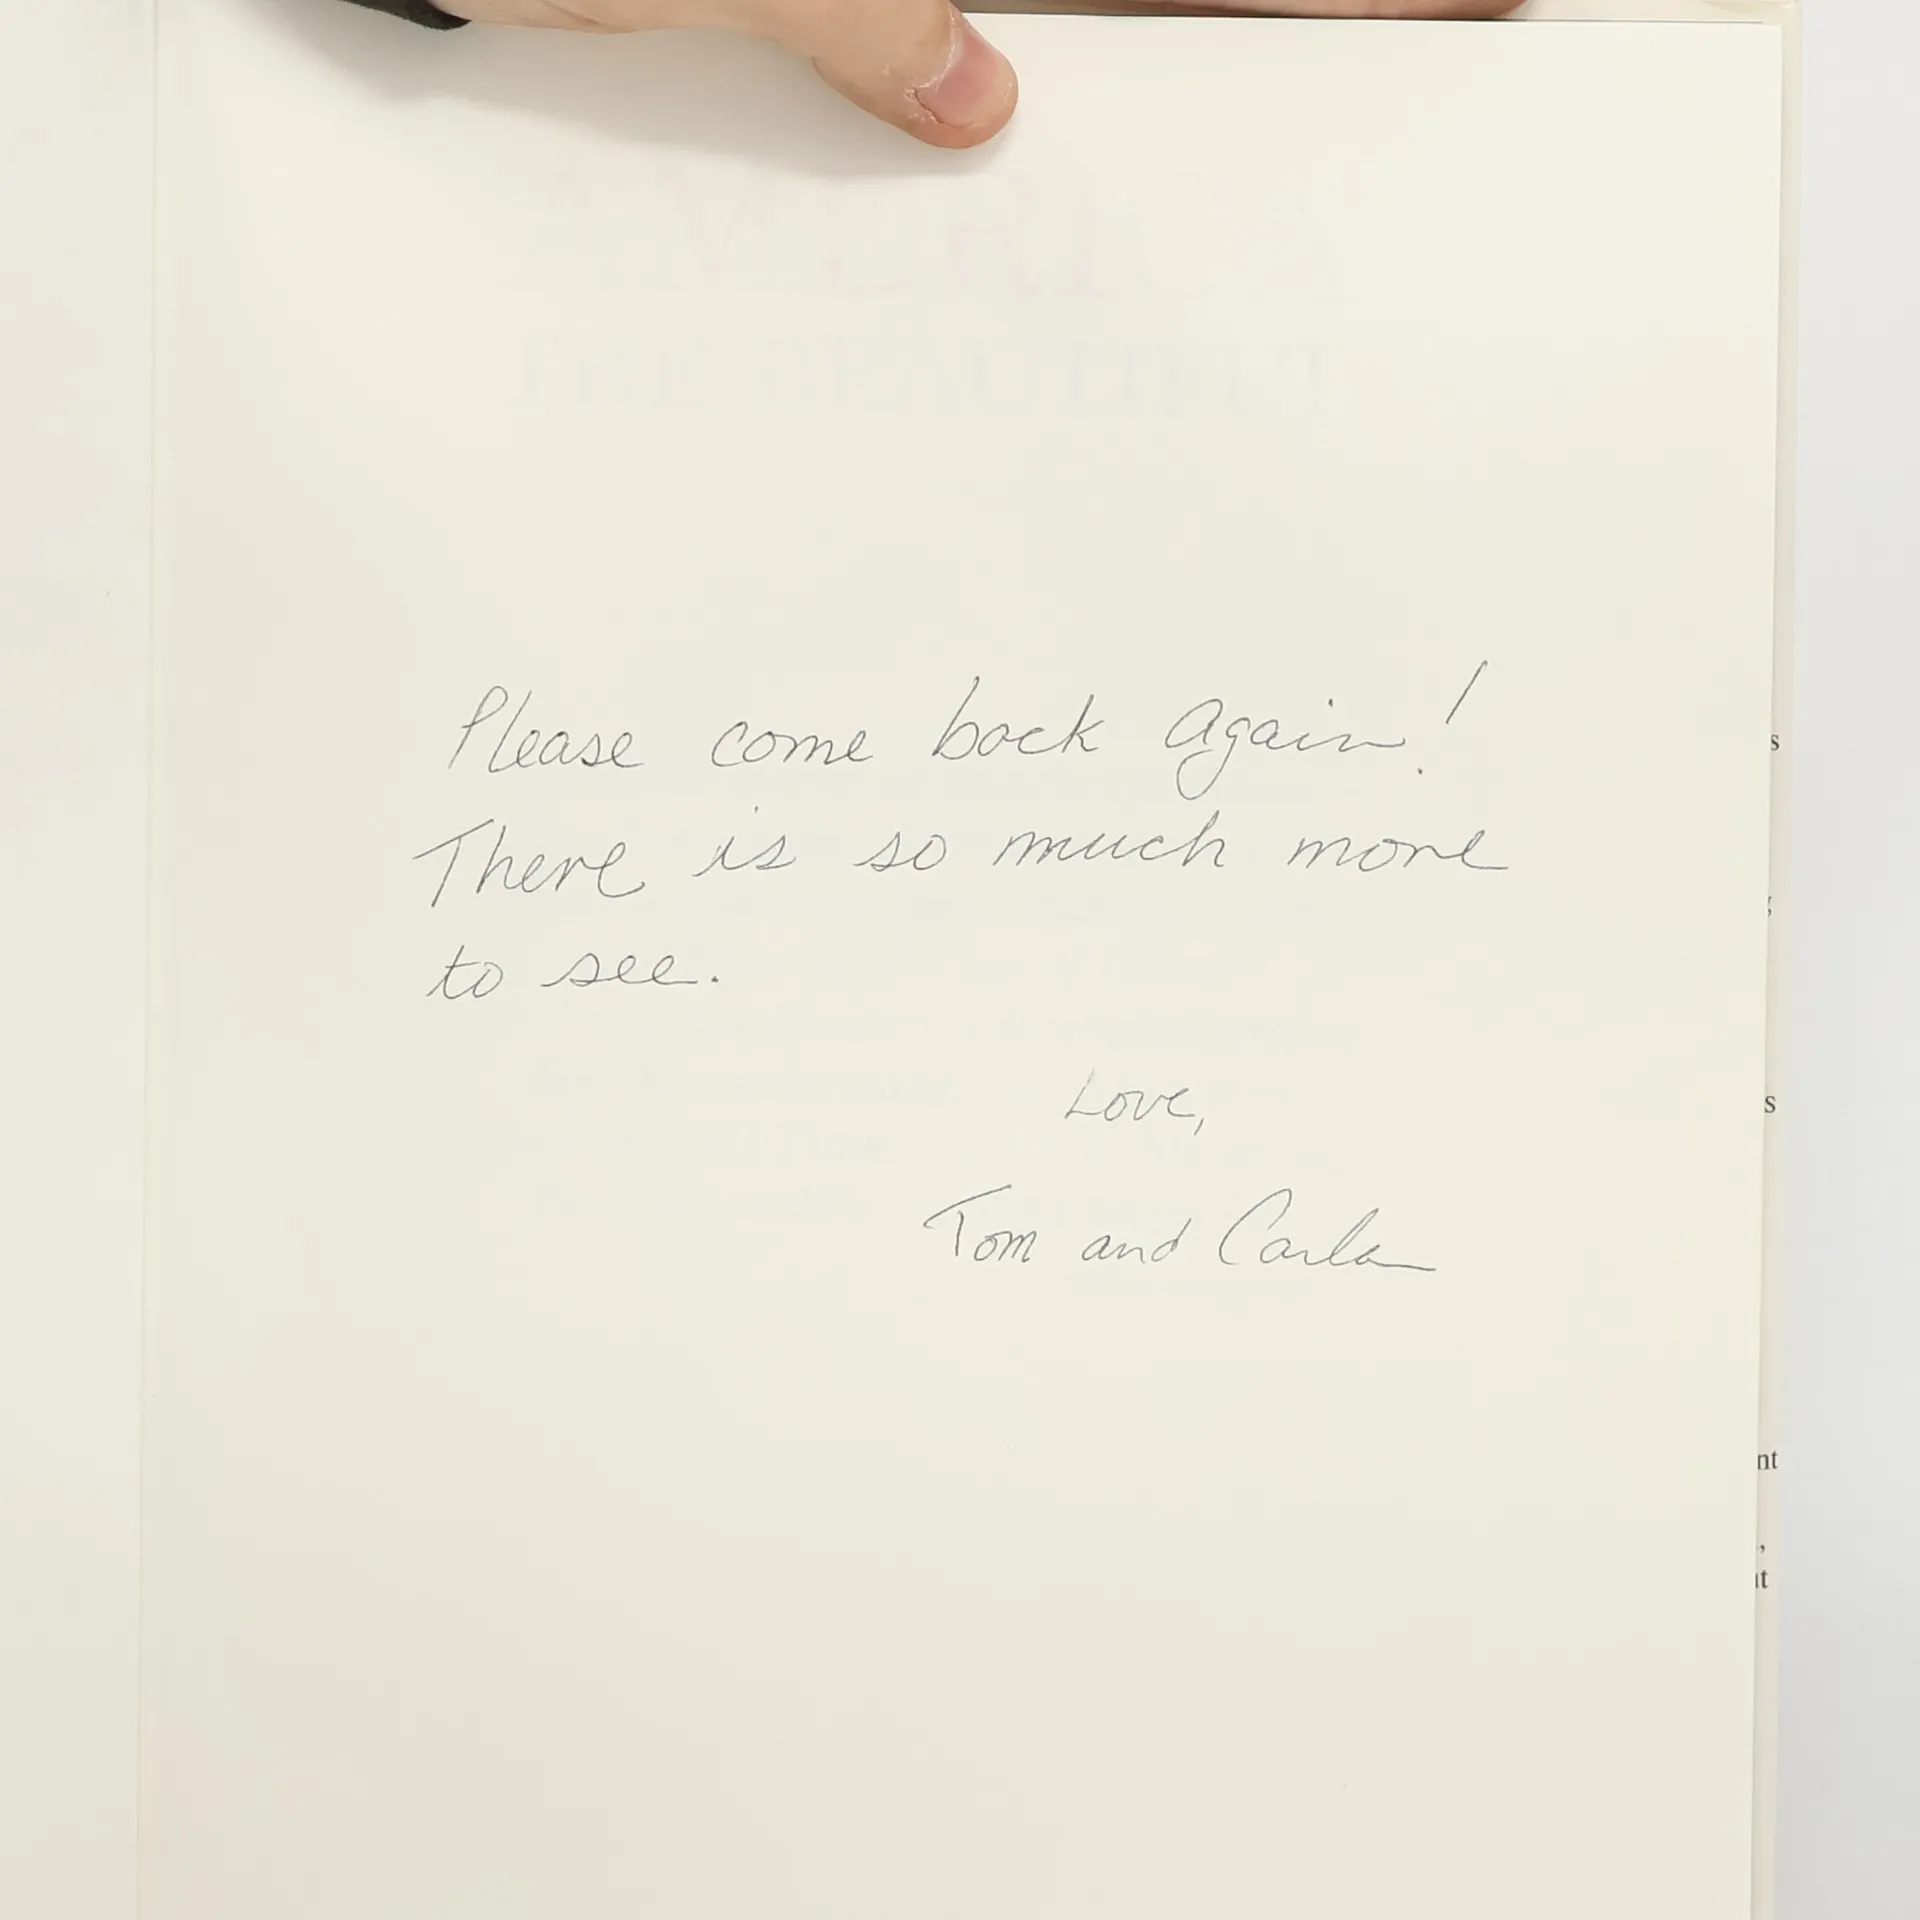 Please come back again!
There is so much more
to see.
Love,
Tom and Carla
s
s
nt
,